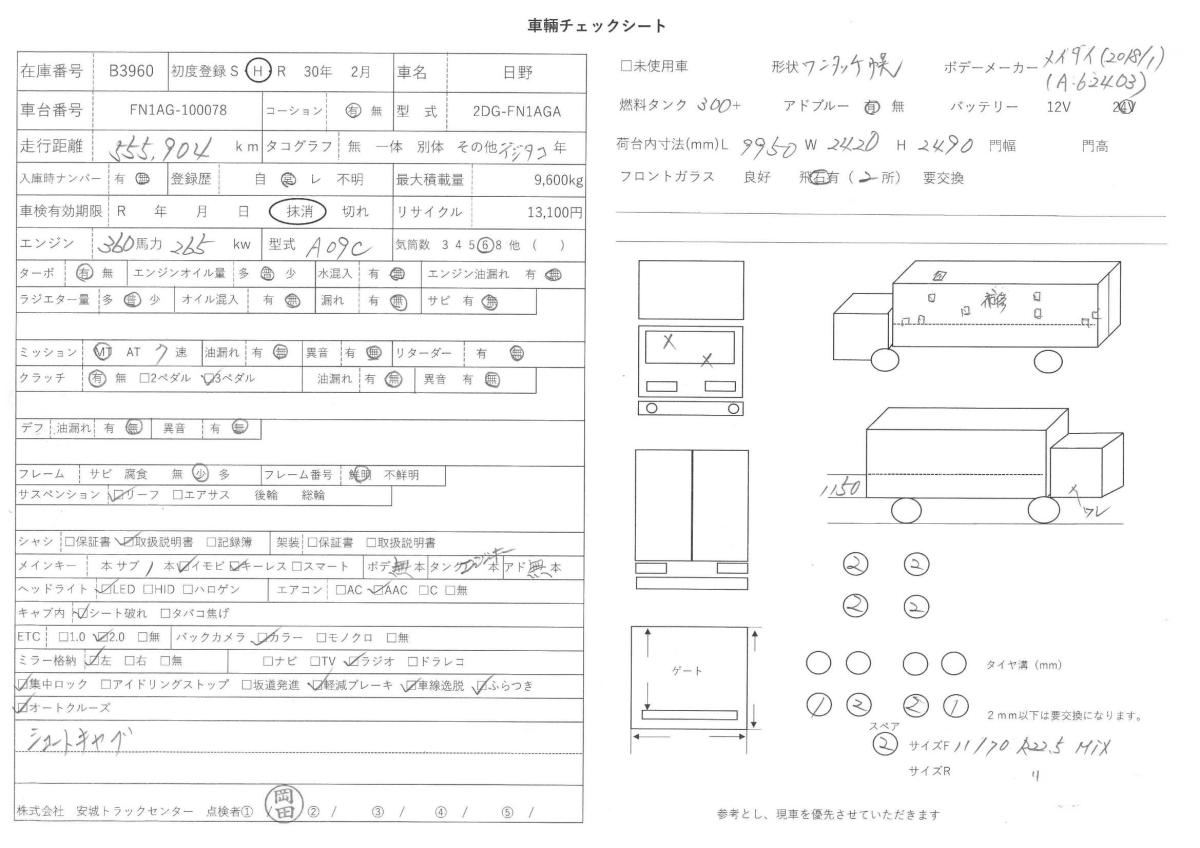 車輛チェックシート
在庫番号 B3960 初度登録 S H R 30年 2月 車名 日野
車台番号 FN1AG-100078 コーション 有 無 型 式 2DG-FN1AGA
走行距離 555,904 km タコグラフ 無 一体 別体 その他 デジタコ 年
入庫時ナンバー 有 無 登録歴 自 レ 不明 最大積載量 9,600kg
車検有効期限 R 年 月 日 抹消 切れ リサイクル 13,100円
エンジン 360 馬力 265 kw 型式 A09C 気筒数 3 4 5 6 8 他 ( )
ターボ 有 無 エンジンオイル量 多 普 少 水混入 有 無 エンジン油漏れ 有 無
ラジエター量 多 普 少 オイル混入 有 無 漏れ 有 無 サビ 有 無
ミッション MT AT 7 速 油漏れ 有 無 異音 有 無 リターダー 有 無
クラッチ 有 無 □2ペダル ☑3ペダル 油漏れ 有 無 異音 有 無
デフ 油漏れ 有 無 異音 有 無
フレーム サビ 腐食 無 少 多 フレーム番号 鮮明 不鮮明
サスペンション ☑リーフ □エアサス 後輪 総輪
シャシ □保証書 ☑取扱説明書 □記録簿 架装 □保証書 □取扱説明書
メインキー 本 サブ 1 本 ☑イモビ ☑キーレス □スマート ボデ 無 本 タンク エンジンキー 本 アド 無 本
ヘッドライト ☑LED □HID □ハロゲン エアコン □AC ☑AAC □C □無
キャブ内 ☑シート破れ □タバコ焦げ
ETC □1.0 ☑2.0 □無 バックカメラ ☑カラー □モノクロ □無
ミラー格納 ☑左 □右 □無 □ナビ □TV ☑ラジオ □ドラレコ
☑集中ロック □アイドリングストップ □坂道発進 ☑軽減ブレーキ ☑車線逸脱 ☑ふらつき
☑オートクルーズ
ショートキャブ
株式会社 安城トラックセンター 点検者① / 岡田 ② / ③ / ④ / ⑤ /
□未使用車 形状 ワンタッチ幌 ボデーメーカー メイダイ(2018/1)
(A-62403)
燃料タンク 300+ アドブルー 有 無 バッテリー 12V 24V
荷台内寸法(mm) L 9950 W 2420 H 2490 門幅 門高
フロントガラス 良好 飛石有 ( 2 所) 要交換
補修
X
X
1150
X
ワレ
2 2
2 2
ゲート
タイヤ溝 (mm)
1 2 2 1
2mm以下は要交換になります。
スペア
2 サイズF 11/70 R22.5 MIX
サイズR 〃
参考とし、現車を優先させていただきます